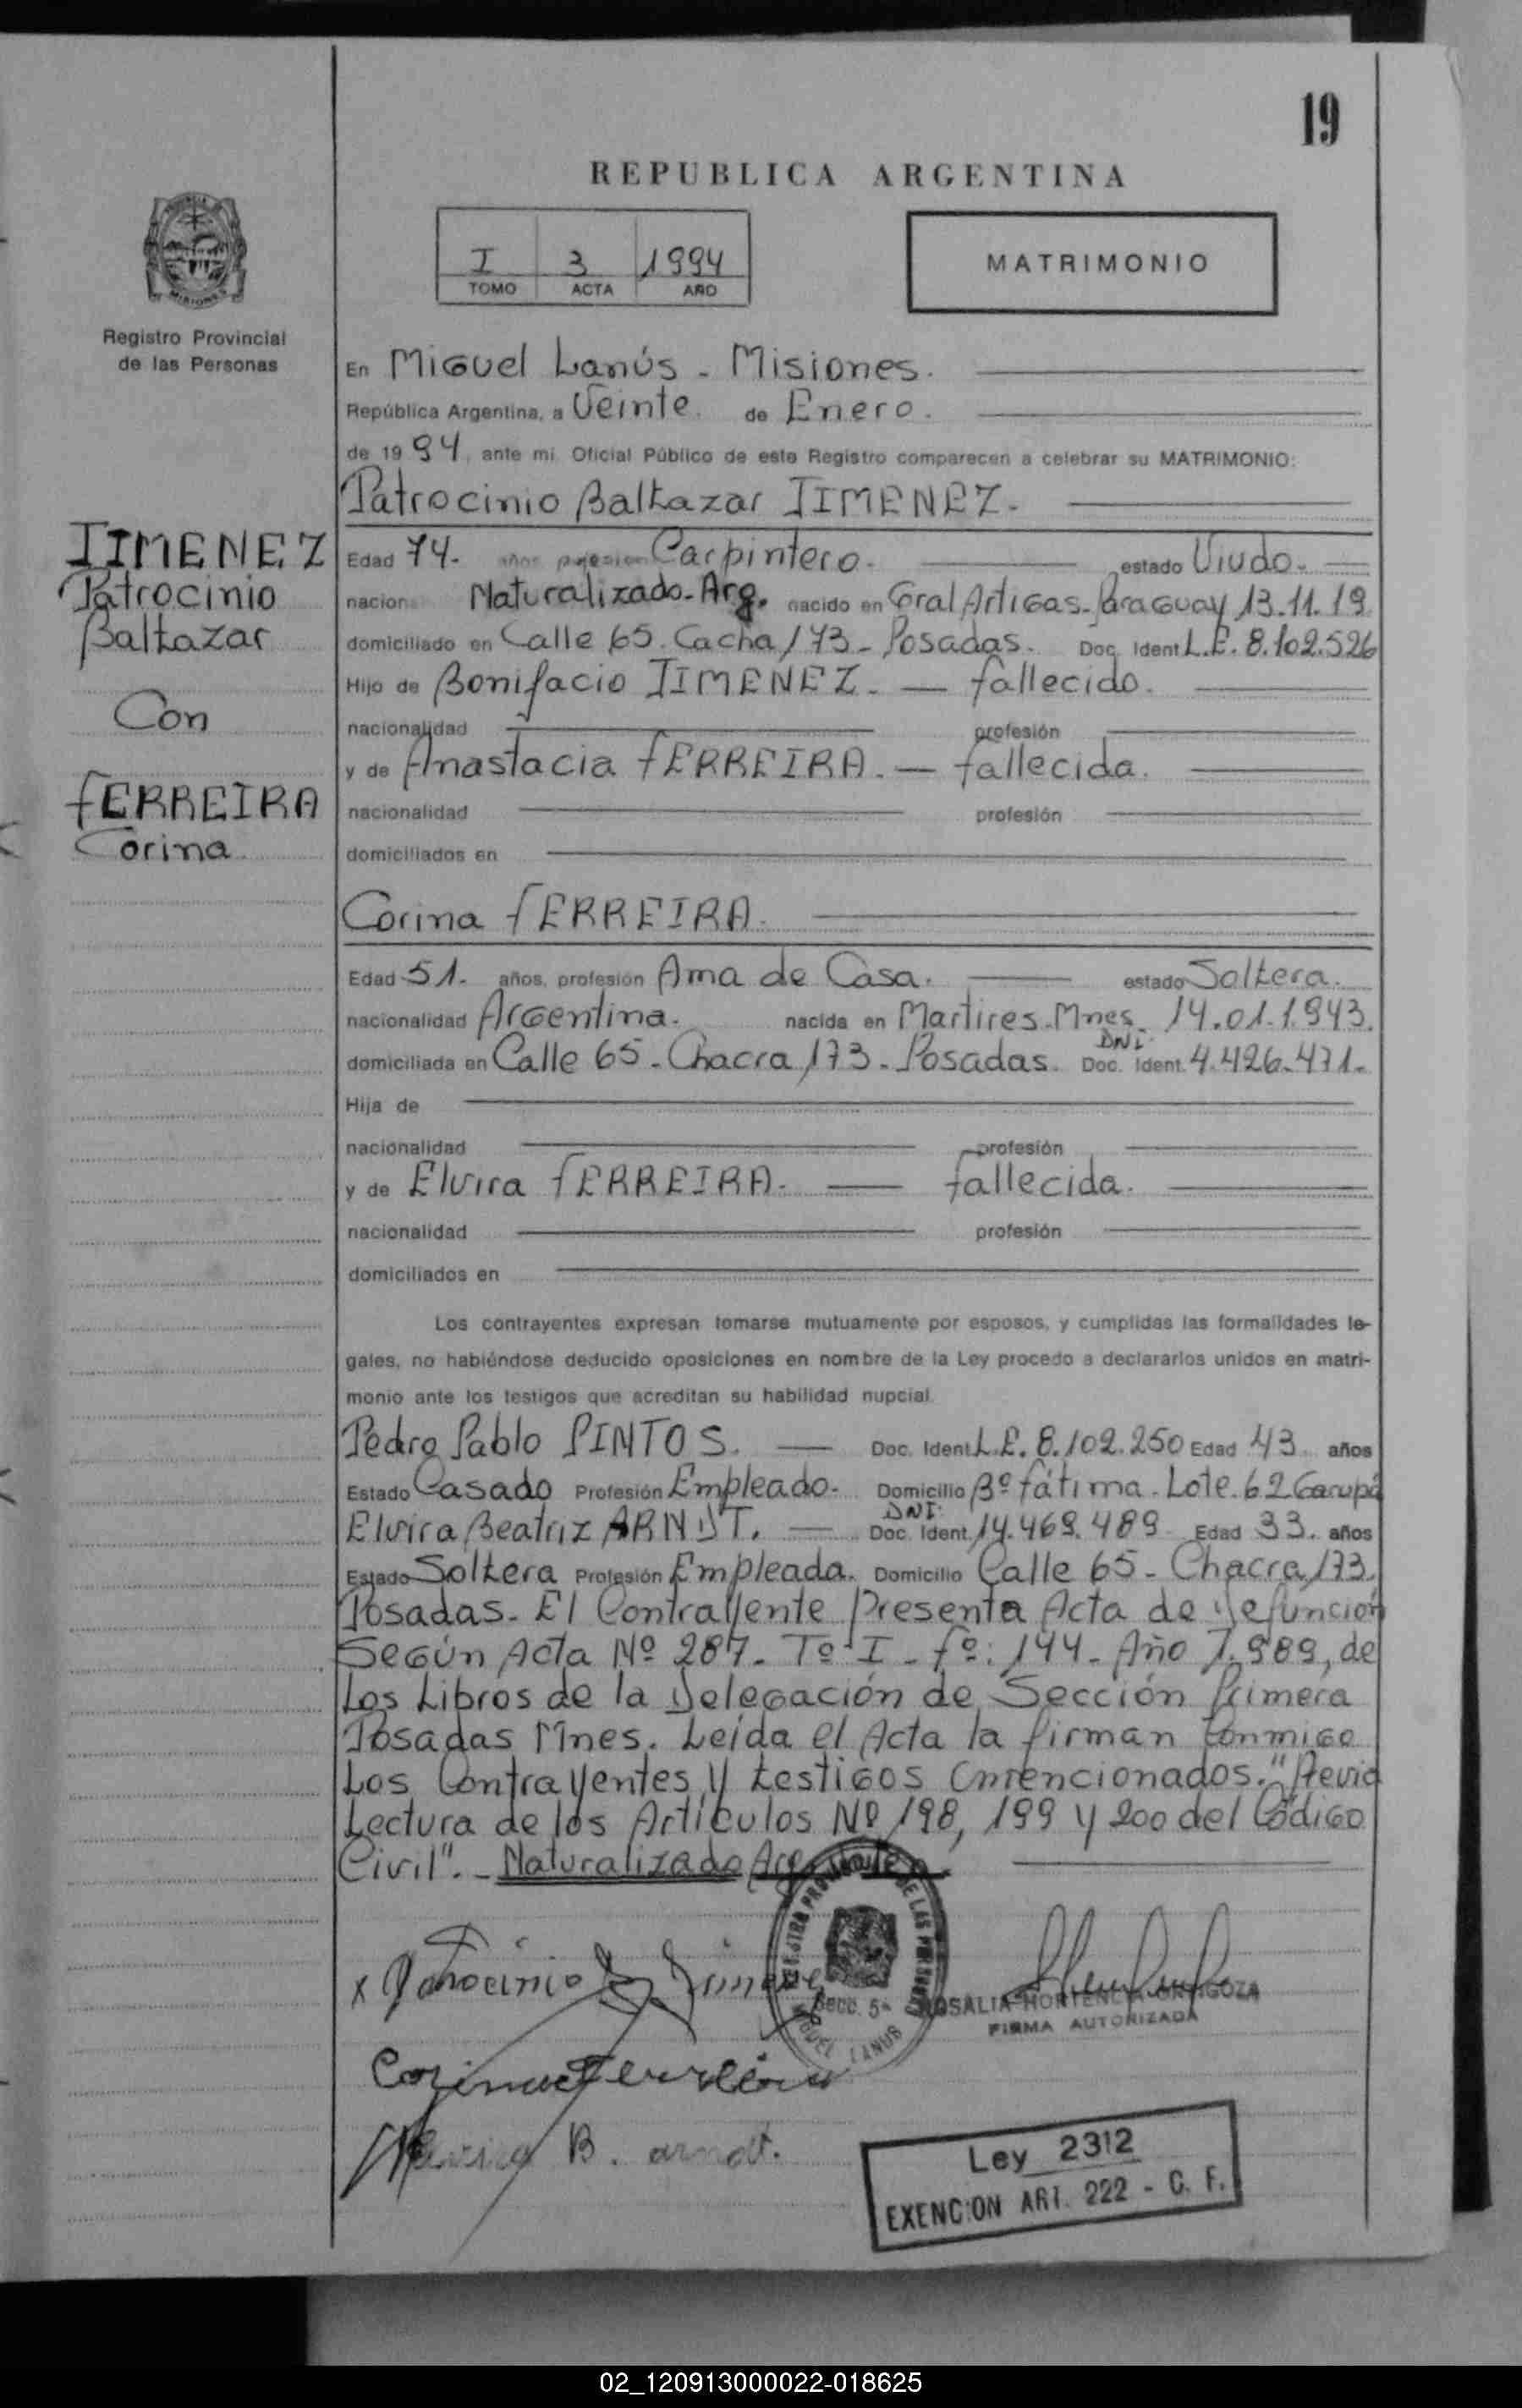 19
REPUBLICA ARGENTINA
I 3 1994
TOMO ACTA AÑO
MATRIMONIO
MISIONES
Registro Provincial
de las Personas
En Miguel Lanús - Misiones.
República Argentina, a Veinte. de Enero.
de 1994, ante mi Oficial Público de este Registro comparecen a celebrar su MATRIMONIO:
Patrocinio Baltazar JIMENEZ.
JIMENEZ
Patrocinio
Baltazar
Con
FERREIRA
Corina
Edad 74. años profesion Carpintero. estado Viudo.
nacion Naturalizado-Arg. nacido en Gral Artigas-Paraguay 13.11.19.
domiciliado en Calle 65. Cacha 173 - Posadas. Doc. Ident L.E. 8.102.526
Hijo de Bonifacio JIMENEZ. — fallecido.
nacionalidad profesión
y de Anastacia FERREIRA. — fallecida.
nacionalidad profesión
domiciliados en
Corina FERREIRA.
Edad 51. años, profesión Ama de Casa. estado Soltera.
nacionalidad Argentina. nacida en Martires-Mnes. 14.01.1.943.
DNI.
domiciliada en Calle 65 - Chacra 173 - Posadas. Doc. Ident. 4.426.471.
Hija de
nacionalidad profesión
y de Elvira FERREIRA. — fallecida.
nacionalidad profesión
domiciliados en
Los contrayentes expresan tomarse mutuamente por esposos, y cumplidas las formalidades le-
gales, no habiéndose deducido oposiciones en nombre de la Ley procedo a declararlos unidos en matri-
monio ante los testigos que acreditan su habilidad nupcial.
Pedro Pablo PINTOS. — Doc. Ident L.E. 8.102.250 Edad 43 años
Estado Casado Profesión Empleado. Domicilio Bº Fátima. Lote. 62 Garupá
DNI:
Elvira Beatriz ARNDT. — Doc. Ident. 14.469.489 Edad 33. años
Estado Soltera Profesión Empleada. Domicilio Calle 65 - Chacra 173.
Posadas. El Contrayente Presenta Acta de Defunción
Según Acta Nº 287. Tº I - fº: 144 - Año 1.989, de
Los Libros de la Delegación de Sección Primera
Posadas Mnes. Leída el Acta la firman Conmigo
Los Contrayentes y testigos mencionados. "Previa
Lectura de los Artículos Nº 198, 199 y 200 del Código
Civil". - Naturalizado Arg
x Patrocinio B Jimenez
Secc. 5ª
MIGUEL LANUS
ROSALIA HORTENCIA
FIRMA AUTORIZADA
Corina Ferreira
Elvira B. arndt.
Ley 2312
EXENCION ART. 222 - C. F.
02_120913000022-018625